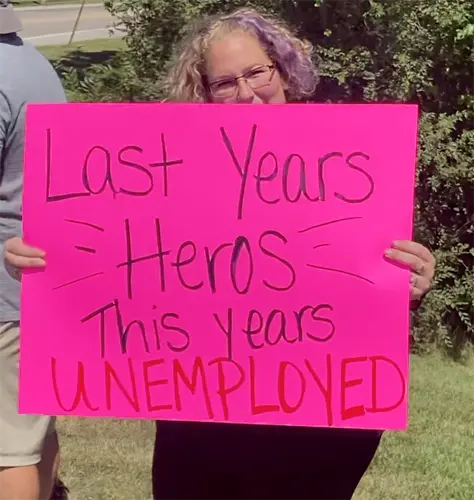 Last Years
Heros
This years
UNEMPLOYED